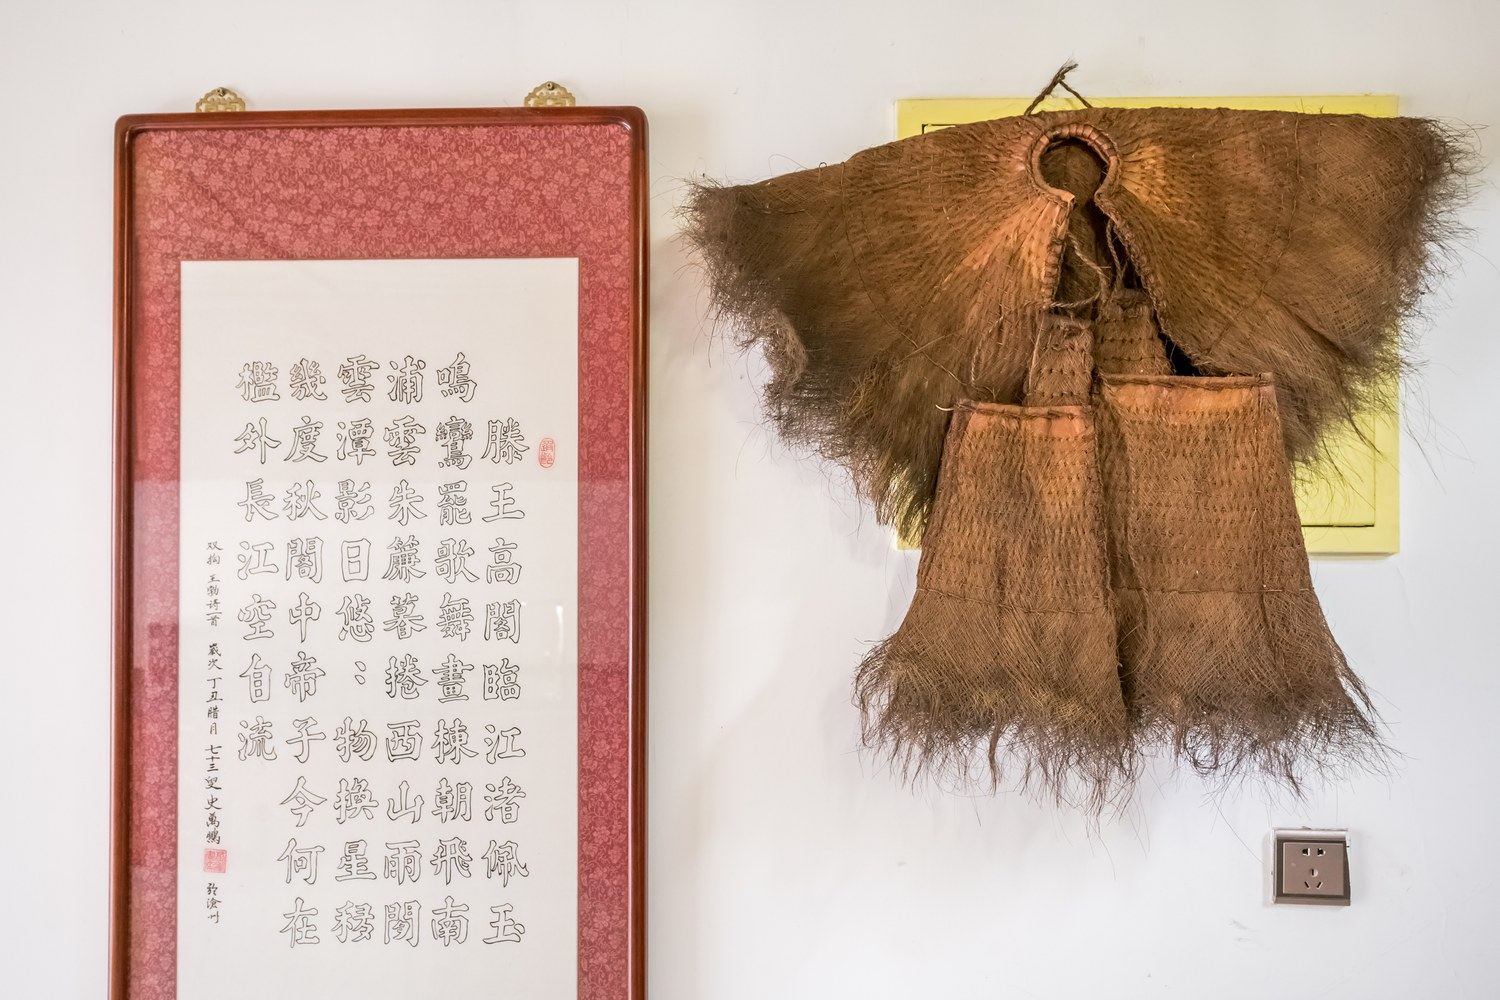 滕王高閣臨江渚佩玉
鳴鸞罷歌舞畫棟朝飛南
浦雲朱簾暮捲西山雨閑
雲潭影日悠：物換星移
幾度秋閣中帝子今何在
檻外長江空自流
双拘王勃诗一首 歲次丁丑腊月七十三叟史萬